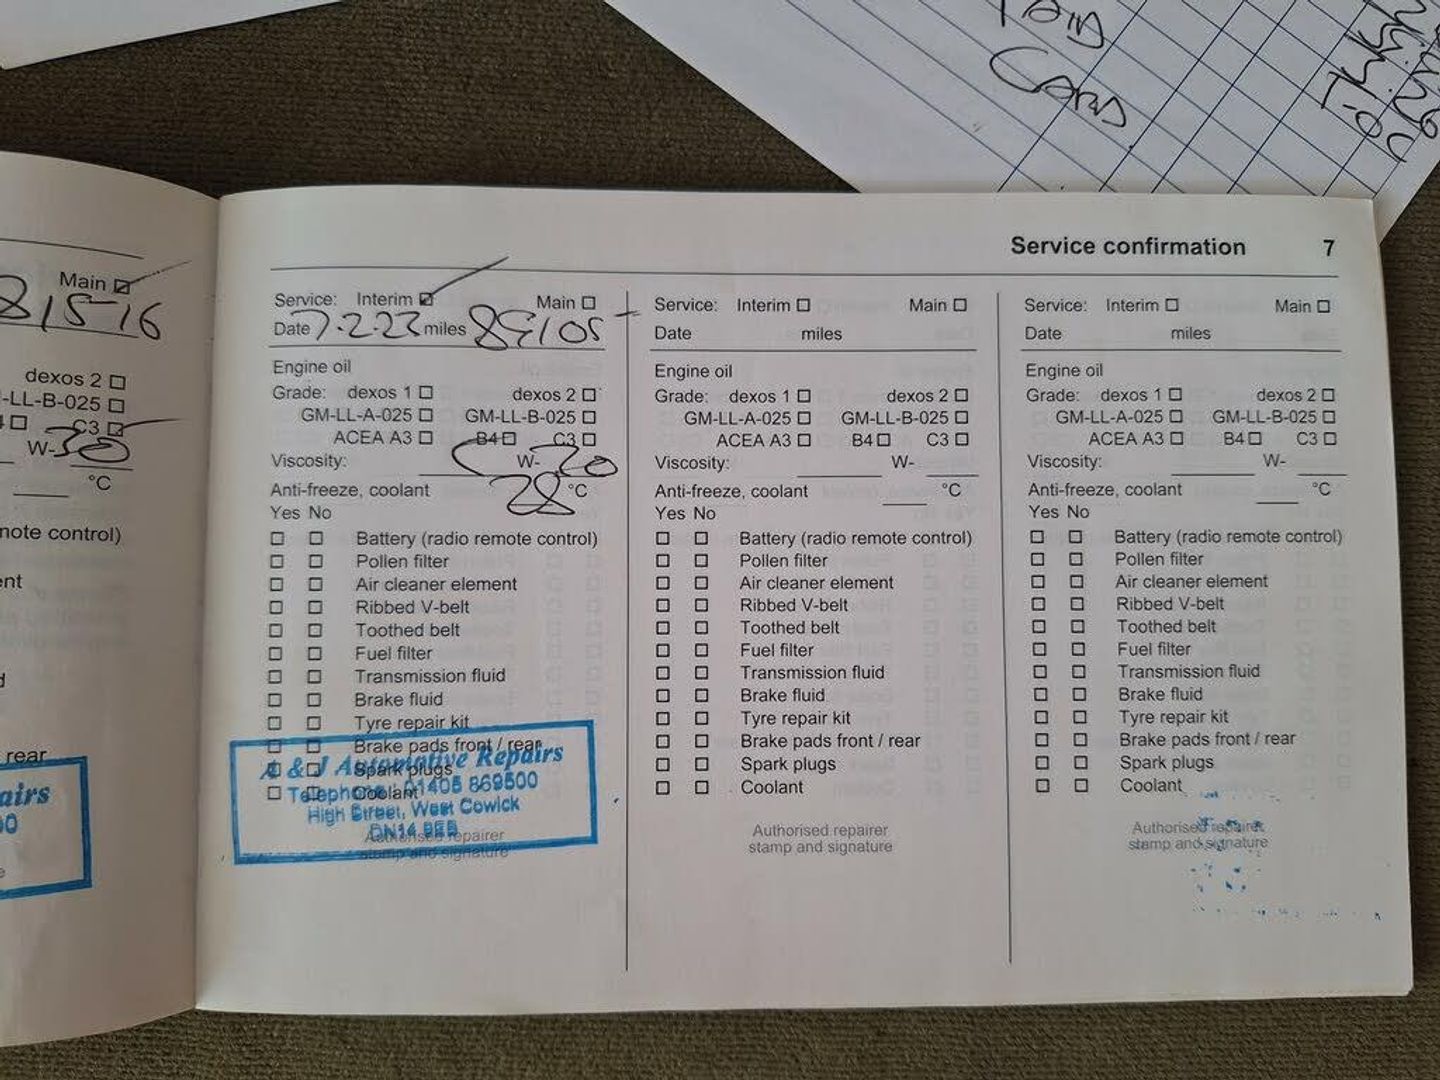 PAID
CARD
Main ☑
81516
dexos 2 ☐
-LL-B-025 ☐
☐ C3 ☑
W-30
°C
note control)
ent
d
rear
airs
00
e
Service confirmation 7
Service: Interim ☑ Main ☐
Date 7-2-23 miles
Engine oil
Grade: dexos 1 ☐ dexos 2 ☐
GM-LL-A-025 ☐ GM-LL-B-025 ☐
ACEA A3 ☐ B4 ☐ C3 ☐
Viscosity: W-
Anti-freeze, coolant 28 °C
Yes No
☐ ☐ Battery (radio remote control)
☐ ☐ Pollen filter
☐ ☐ Air cleaner element
☐ ☐ Ribbed V-belt
☐ ☐ Toothed belt
☐ ☐ Fuel filter
☐ ☐ Transmission fluid
☐ ☐ Brake fluid
☐ ☐ Tyre repair kit
☐ ☐ Brake pads front / rear
☐ ☐ Spark plugs
☐ ☐ Coolant
Authorised repairer
stamp and signature
A & J Automotive Repairs
Telephone: 01405 869500
High Street, West Cowick
DN14
Service: Interim ☐ Main ☐
Date miles
Engine oil
Grade: dexos 1 ☐ dexos 2 ☐
GM-LL-A-025 ☐ GM-LL-B-025 ☐
ACEA A3 ☐ B4 ☐ C3 ☐
Viscosity: W-
Anti-freeze, coolant °C
Yes No
☐ ☐ Battery (radio remote control)
☐ ☐ Pollen filter
☐ ☐ Air cleaner element
☐ ☐ Ribbed V-belt
☐ ☐ Toothed belt
☐ ☐ Fuel filter
☐ ☐ Transmission fluid
☐ ☐ Brake fluid
☐ ☐ Tyre repair kit
☐ ☐ Brake pads front / rear
☐ ☐ Spark plugs
☐ ☐ Coolant
Authorised repairer
stamp and signature
Service: Interim ☐ Main ☐
Date miles
Engine oil
Grade: dexos 1 ☐ dexos 2 ☐
GM-LL-A-025 ☐ GM-LL-B-025 ☐
ACEA A3 ☐ B4 ☐ C3 ☐
Viscosity: W-
Anti-freeze, coolant °C
Yes No
☐ ☐ Battery (radio remote control)
☐ ☐ Pollen filter
☐ ☐ Air cleaner element
☐ ☐ Ribbed V-belt
☐ ☐ Toothed belt
☐ ☐ Fuel filter
☐ ☐ Transmission fluid
☐ ☐ Brake fluid
☐ ☐ Tyre repair kit
☐ ☐ Brake pads front / rear
☐ ☐ Spark plugs
☐ ☐ Coolant
Authorised repairer
stamp and signature